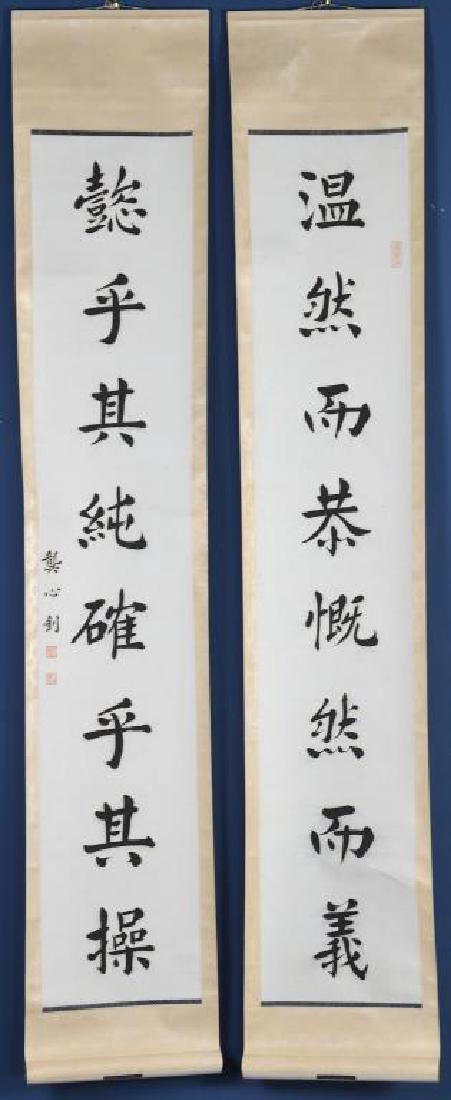 温然而恭慨然而義
懿乎其純確乎其操
龔心釗